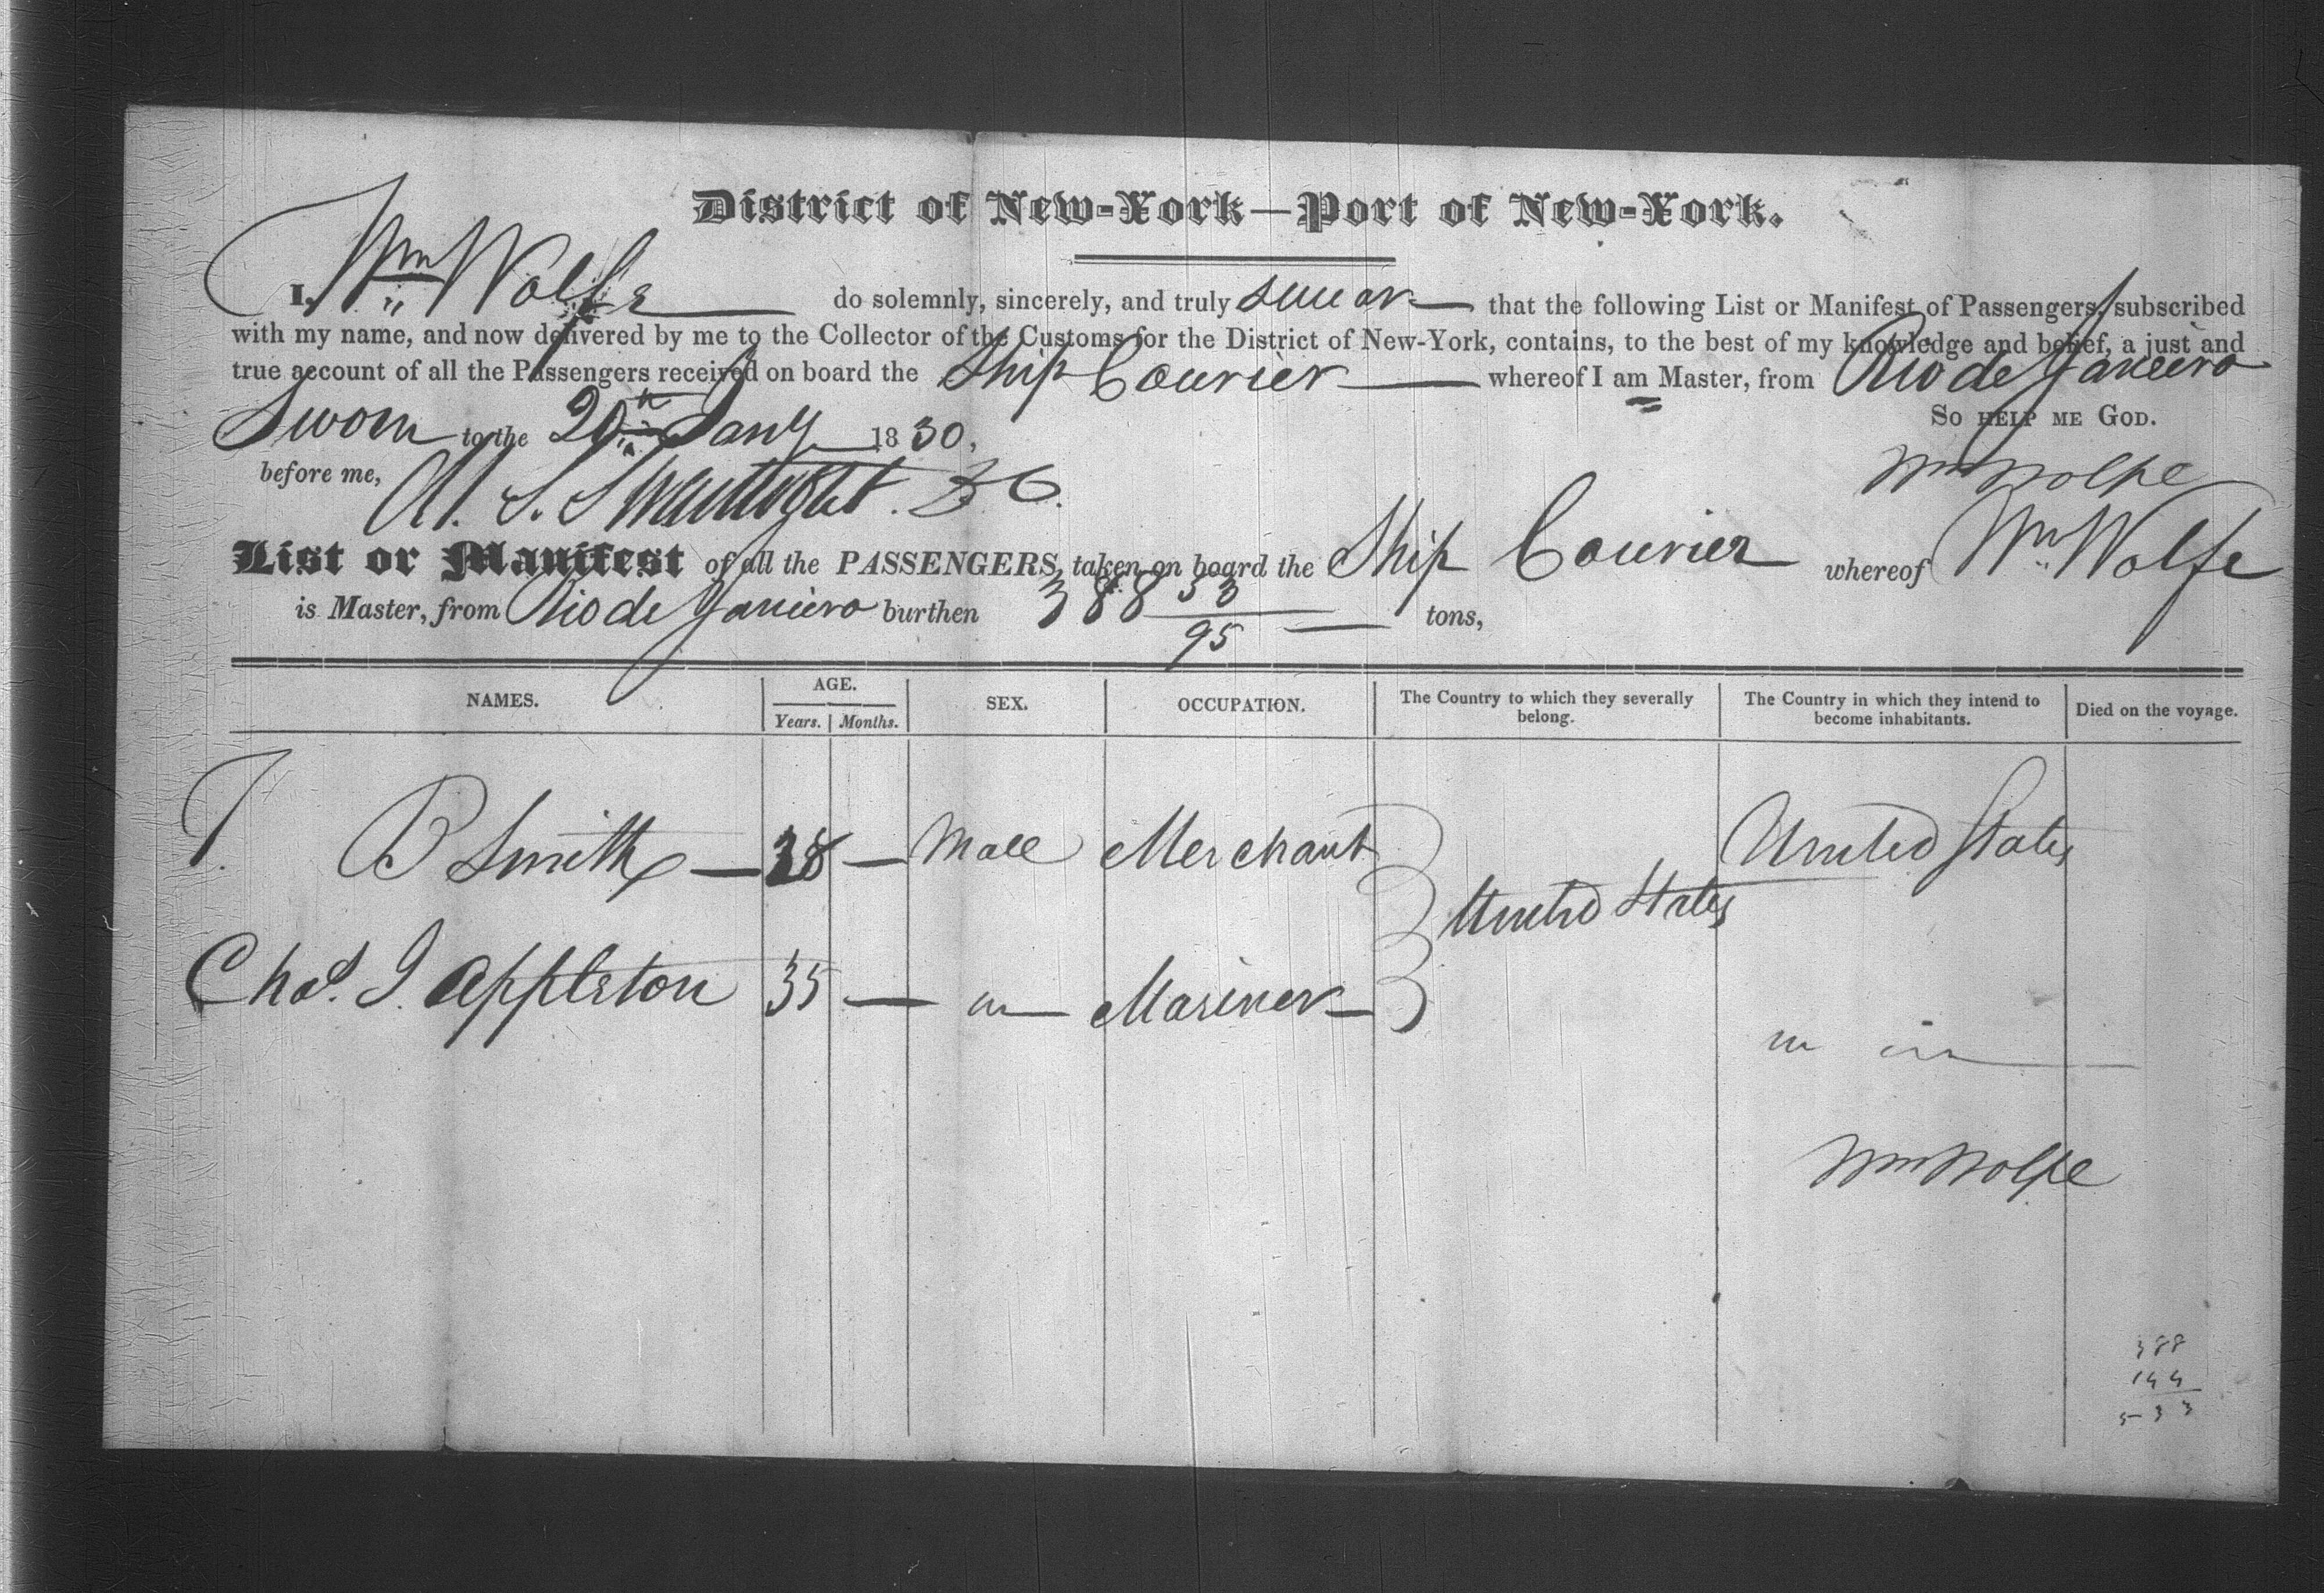 District of New-York—Port of New-York.
I, Wm Wolfe do solemnly, sincerely, and truly swear that the following List or Manifest of Passengers, subscribed
with my name, and now delivered by me to the Collector of the Customs for the District of New-York, contains, to the best of my knowledge and belief, a just and
true account of all the Passengers received on board the Ship Courier whereof I am Master, from Rio de Janeiro
SO HELP ME GOD.
Sworn to the 20th Jany 1830,
before me,
Wm Wolfe
List or Manifest of all the PASSENGERS taken on board the Ship Courier whereof Wm Wolfe
is Master, from Rio de Janeiro burthen 388 53/95 tons,
NAMES. AGE. Years. Months. SEX. OCCUPATION. The Country to which they severally belong. The Country in which they intend to become inhabitants. Died on the voyage.
B Smith — — Male Merchant United States United States
Chas. J. Appleton 35 — " — Mariner — " "
Wm Wolfe
388
144
533